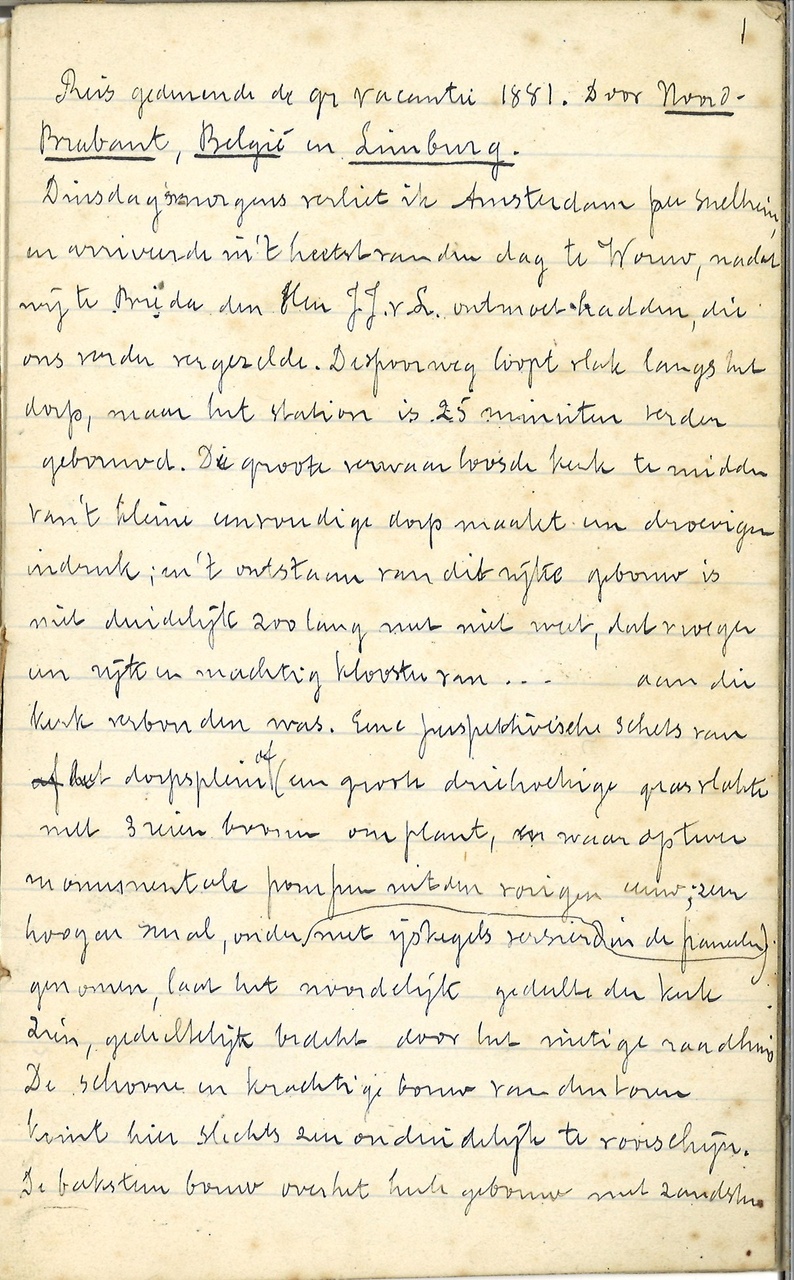 1
Reis gedurende de gr vacantie 1881. Door Noord-
Brabant, België en Limburg.
Dinsdag'smorgens verliet ik Amsterdam per sneltrein,
en arriveerde in 't heetst van den dag te Wouw, nadat
wij te Breda den Heer J.J.v L. ontmoet hadden, die
ons verder vergezelde. De spoorweg loopt vlak langs het
dorp, maar het station is 25 minuten verder
gebouwd. De groote verwaarloosde kerk te midden
van 't kleine eenvoudige dorp maakt een droevigen
indruk; en 't ontstaan van dit rijke gebouw is
niet duidelijk zoo lang men niet weet, dat vroeger
een rijk en machtig klooster van ... aan die
kerk verbonden was. Eene perspektivische schets van
af het dorpsplein af (een groote driehoekige grasvlakte
met 3 reien boomen omplant, en waarop twee
monumentale pompen uit den vorigen eeuw; zeer
hoog en smal, onder met ijskegels versierd in de paneelen)
genomen, laat het noordelijk gedeelte der kerk
zien, gedeeltelijk bedekt door het nietige raadhuis
De schoone en krachtige bouw van den toren
komt hier slechts zeer onduidelijk te voorschijn.
De baksteen bouw over het heele gebouw met zandsteen